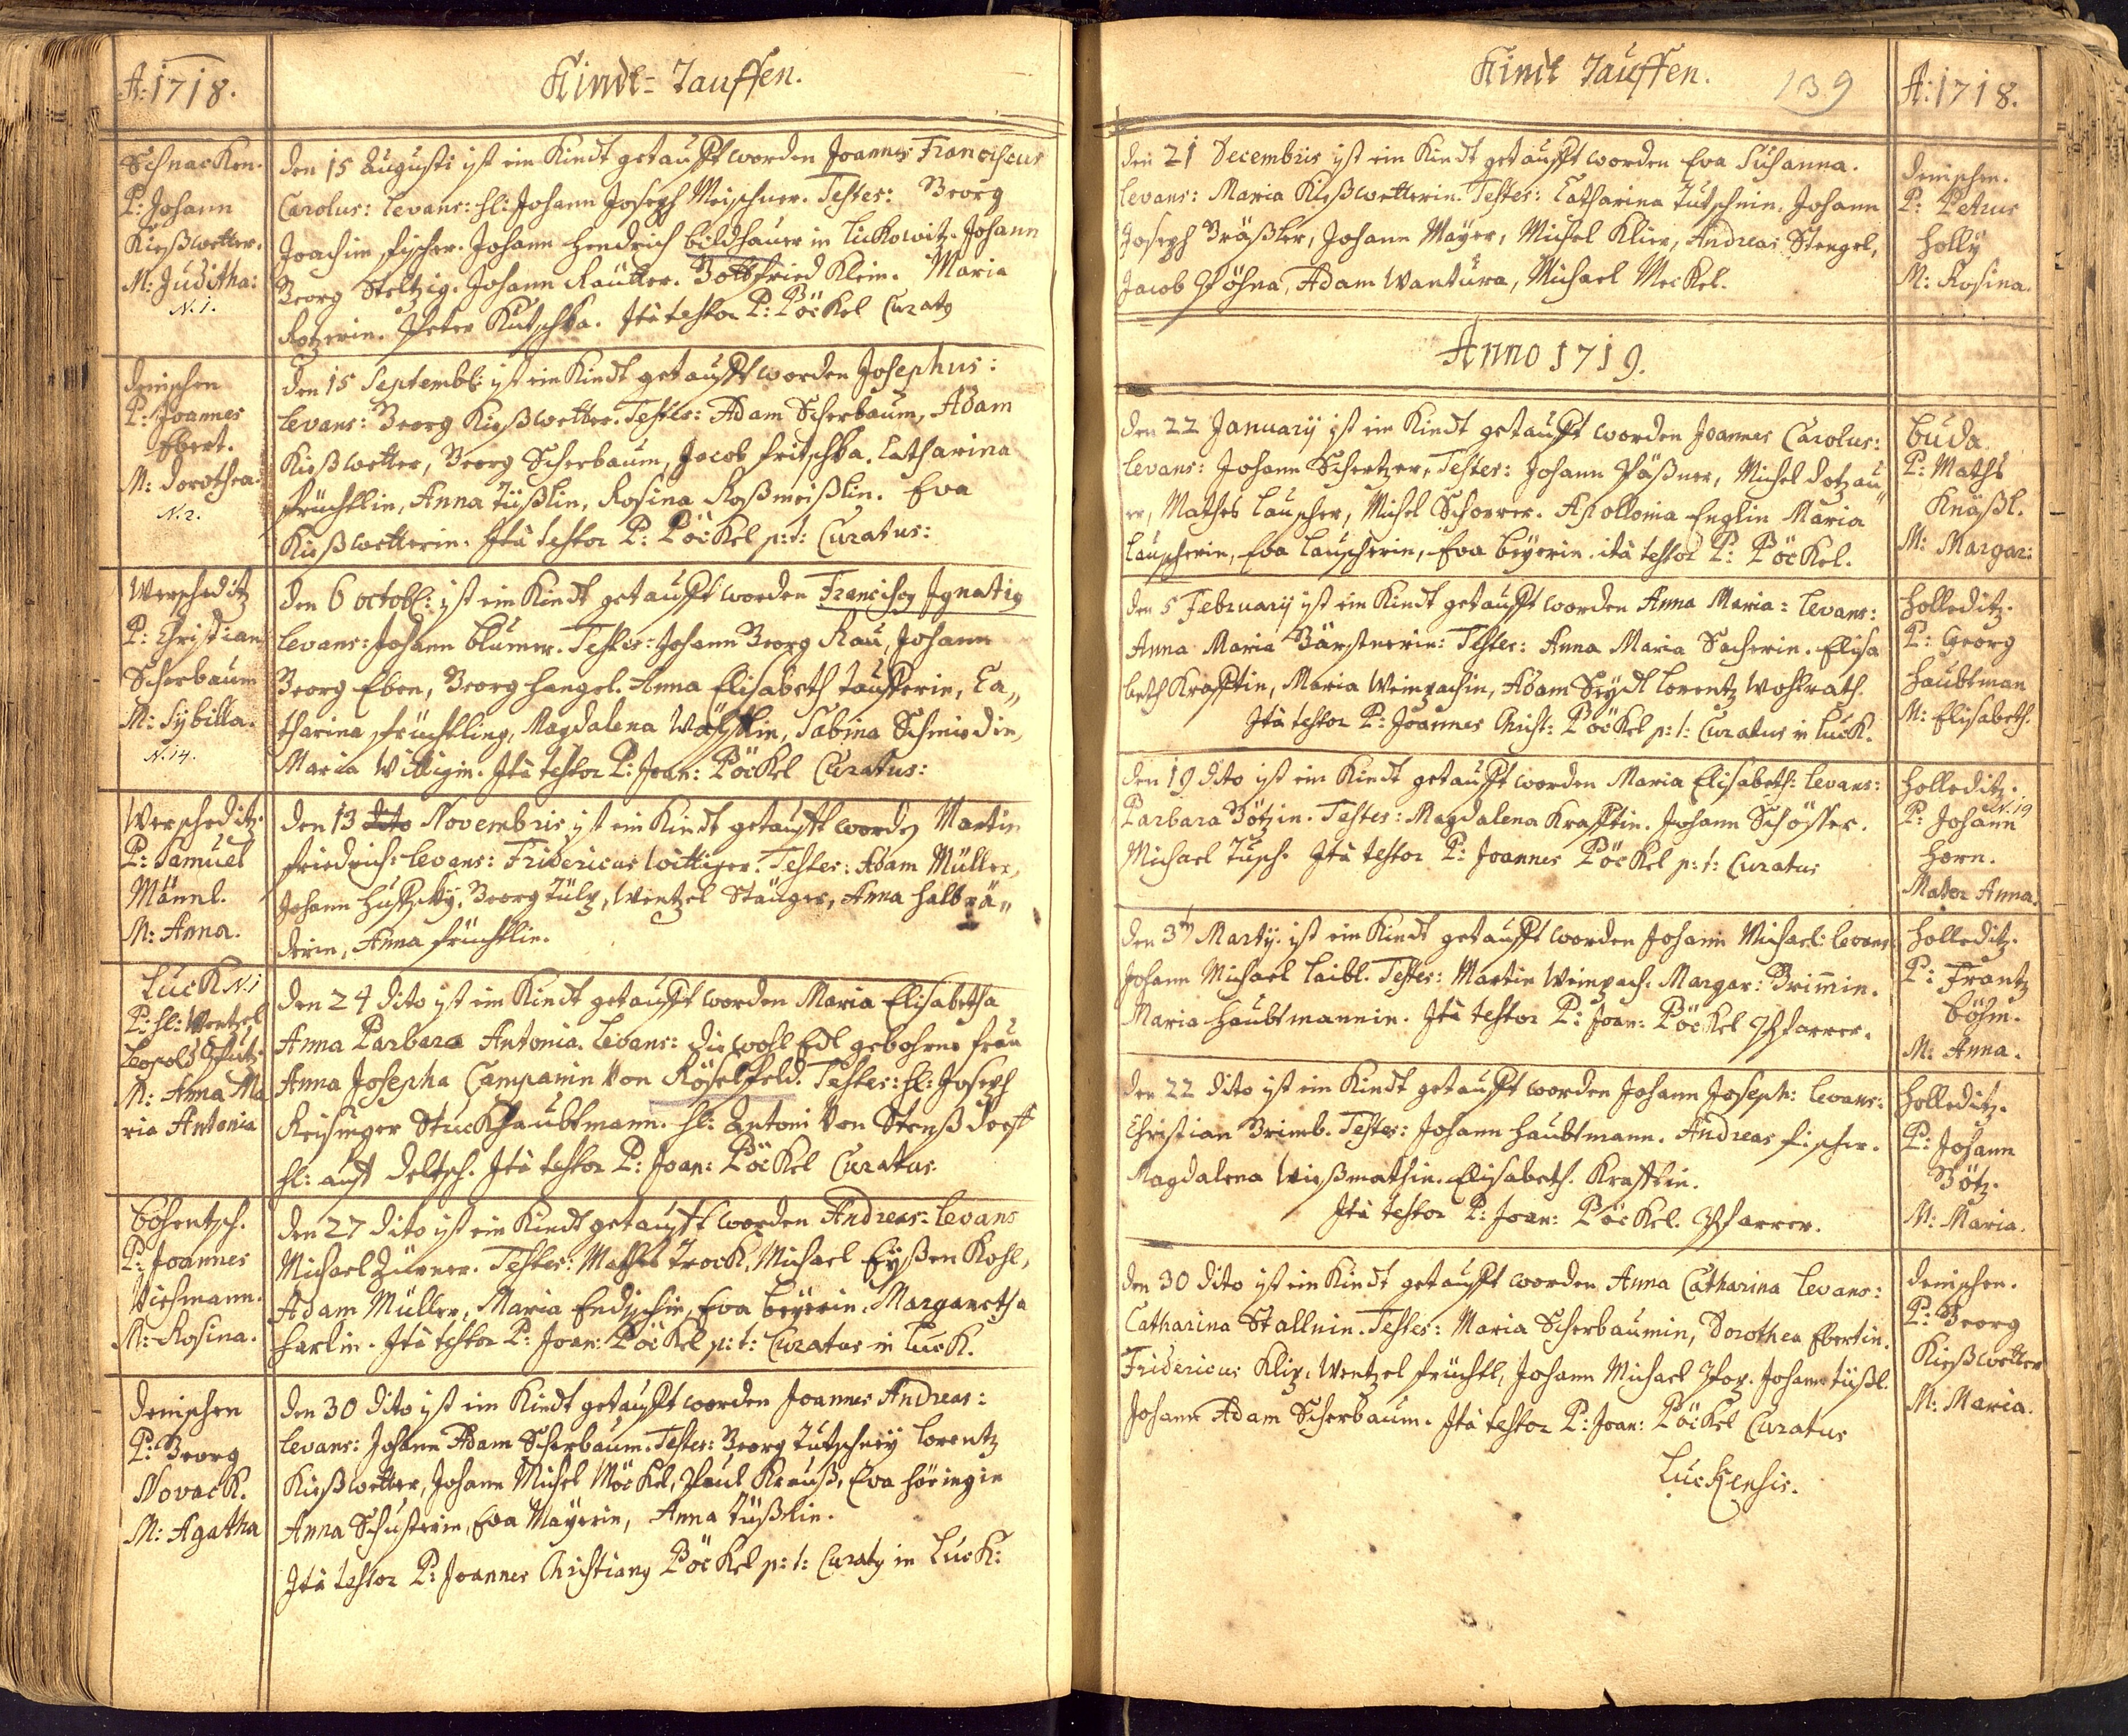 A: 1718.
Kindt=Tauffen.
Schnacken.
P: Johann
Kießwetter.
M: Juditha:
N. 1.
den 15 Augusti ist ein Kindt getaufft worden Joannes Franciscus
Carolus: Levans: H: Johann Joseph Meischner. Testes: Georg
Joachim Fischer. Johann Hendrich bildhauer in Lickowitz. Johann
Georg Steltzig. Johann Rautter. Gottfried Klein. Maria
Peter Kutschka. Ità testor P: Pöckel Curatg
Deutschen
P: Joannes
Ebert.
M: Dorothea.
N. 2.
den 15 Septembl: ist ein Kindt getaufft worden Josephus:
Levans: Georg Kießwetter. Testes: Adam Scherbaum, Adam
Kießwetter, Georg Scherbaum, Jacob Fritschka. Catharina
Früchtlin, Anna Tüßlin, Rosina Roßmeißlin. Eva
Kießwetterin. Ità testor P: Pöckel p: t: Curatus:
Werscheditz
P: Christian
Scherbaum
M: Sybilla.
N. 14.
den 6 octobl: ist ein Kindt getaufft worden Franciscg Ignatig
Levans: Johann Blumer. Testes: Johann Georg Rau, Johann
Georg Eben, Georg Hangel. Anna Elisabeth Taufferin, Ca„
tharina Früchtling, Magdalena Sabina Schmiedin,
Maria Wittigin. Ità testor P: Joan: Pöckel Curatus:
Werscheditz.
P: Samuel
Männl.
M: Anna.
den 13 dito Novembris ist ein Kindt getaufft worden Martin
Friedrich: Levans: Fridericus Wittiger. Testes: Adam Müller,
Johann Georg Tülp, Wentzel Stänger, Anna Halbrä„
derin, Anna Früchtlin.
Luck N. 1
P: H: Wentzel
Leopold
M: Anna Ma
ria Antonia
den 24 dito ist ein Kindt getaufft worden Maria Elisabetha
Anna Barbara Antonia. Levans: die wohl Edl gebohrne Frau
Anna Josepha Campanin Von Röselfeld. Testes: H: Joseph
Reisinger Stuckhaubtmann. H: Antoni Von Stensdorff
H: auff Deltsch. Ità testor P: Joan: Pöckel Curatus.
Bohentsch.
P: Joannes
Viehmann.
M: Rosina.
den 27 dito ist ein Kindt getaufft worden Andreas: Levans
Michael Zürner. Testes: Mathes Trock, Michael Eyßen Kohl,
Adam Müller, Maria Endischin, Eva Beyerin, Margaretha
Harlin. Ità testor P: Joan: Pöckel p: t: Curatus in Luck.
Deutschen
P: Georg
Novack.
M: Agatha
den 30 dito ist ein Kindt getaufft worden Joannes Andreas:
Levans: Johann Adam Scherbaum. Testes: Georg Tutschney Lorentz
Kießwetter, Johann Michel Möckel, Paul Krauß, Eva Höringin
Anna Schusterin, Eva Mayerin, Anna Tüßlin.
Ità testor P: Joannes Christiang Pöckel p: t: Curatg in Luck:
Kindt Tauffen.
139
A: 1718.
den 21 Decembris ist ein Kindt getaufft worden Eva Susanna.
Levans: Maria Kießwetterin. Testes: Catharina Tutschnin. Johann
Joseph Gräßler, Johann Mayer, Michel Klier, Andreas Stengel,
Jacob Pöhna, Adam Wantura, Michael Meckel.
Deutschen.
P: Petrus
Holly
M: Rosina.
Anno 1719.
den 22 January ist ein Kindt getaufft worden Joannes Carolus:
Levans: Johann Schertzer, Testes: Johann Päßner, Michel Dotzau„
er, Mathes Lauscher, Michel Schorrer. Apollonia Englin Maria
Lauscherin, Eva Lauscherin, Eva Beyerin. ità testor P: Pöckel.
Buda
P: Maths
Knäßl.
M: Margar:
den 5 February ist ein Kindt getaufft worden Anna Maria: Levans:
Anna Maria Gärstnerin: Testes: Anna Maria Sacherin. Elisa
beth Krafftin, Maria Weinpachin, Adam Seydl Lorentz Wohlrath.
Ità testor P: Joannes Christ: Pöckel p: t: Curatus in Luck.
Holleditz.
P: Georg
Haubtman
M: Elisabeth.
den 19 dito ist ein Kindt getaufft worden Maria Elisabeth: Levans:
Barbara Götzin. Testes: Magdalena Krafftin. Johann Schösser.
Michael Tusch. Ità testor P: Joannes Pöckel p: t: Curatus
Holleditz.
N. 19
P: Johann
Horn.
Mater Anna.
den 3t Marty. ist ein Kindt getaufft worden Johann Michael: Levans:
Johann Michael Laibl. Testes: Martin Weinpach. Margar: Grimmin.
Maria Haubtmannin. Ità testor P: Joan: Pöckel Pfarrer.
Holleditz.
P: Frantz
Böhm.
M: Anna.
den 22 dito ist ein Kindt getaufft worden Johann Joseph: Levans:
Christian Grimb. Testes: Johann Haubtmann. Andreas Fischer.
Magdalena Wießmathin. Elisabeth. Krafftin.
Ità testor P: Joan: Pöckel. Pfarrer.
Holleditz.
P: Johann
Götz.
M: Maria.
den 30 dito ist ein Kindt getaufft worden Anna Catharina Levans:
Catharina Stallnin. Testes: Maria Scherbaumin, Dorothea Ebertin.
Fridericus Klip, Wentzel Früchtl, Johann Michael Pop. Johann Tüßl.
Johann Adam Scherbaum. Ità testor P: Joan: Pöckel Curatus
Luckensis.
Deutschen.
P: Georg
Kießwetter
M: Maria.